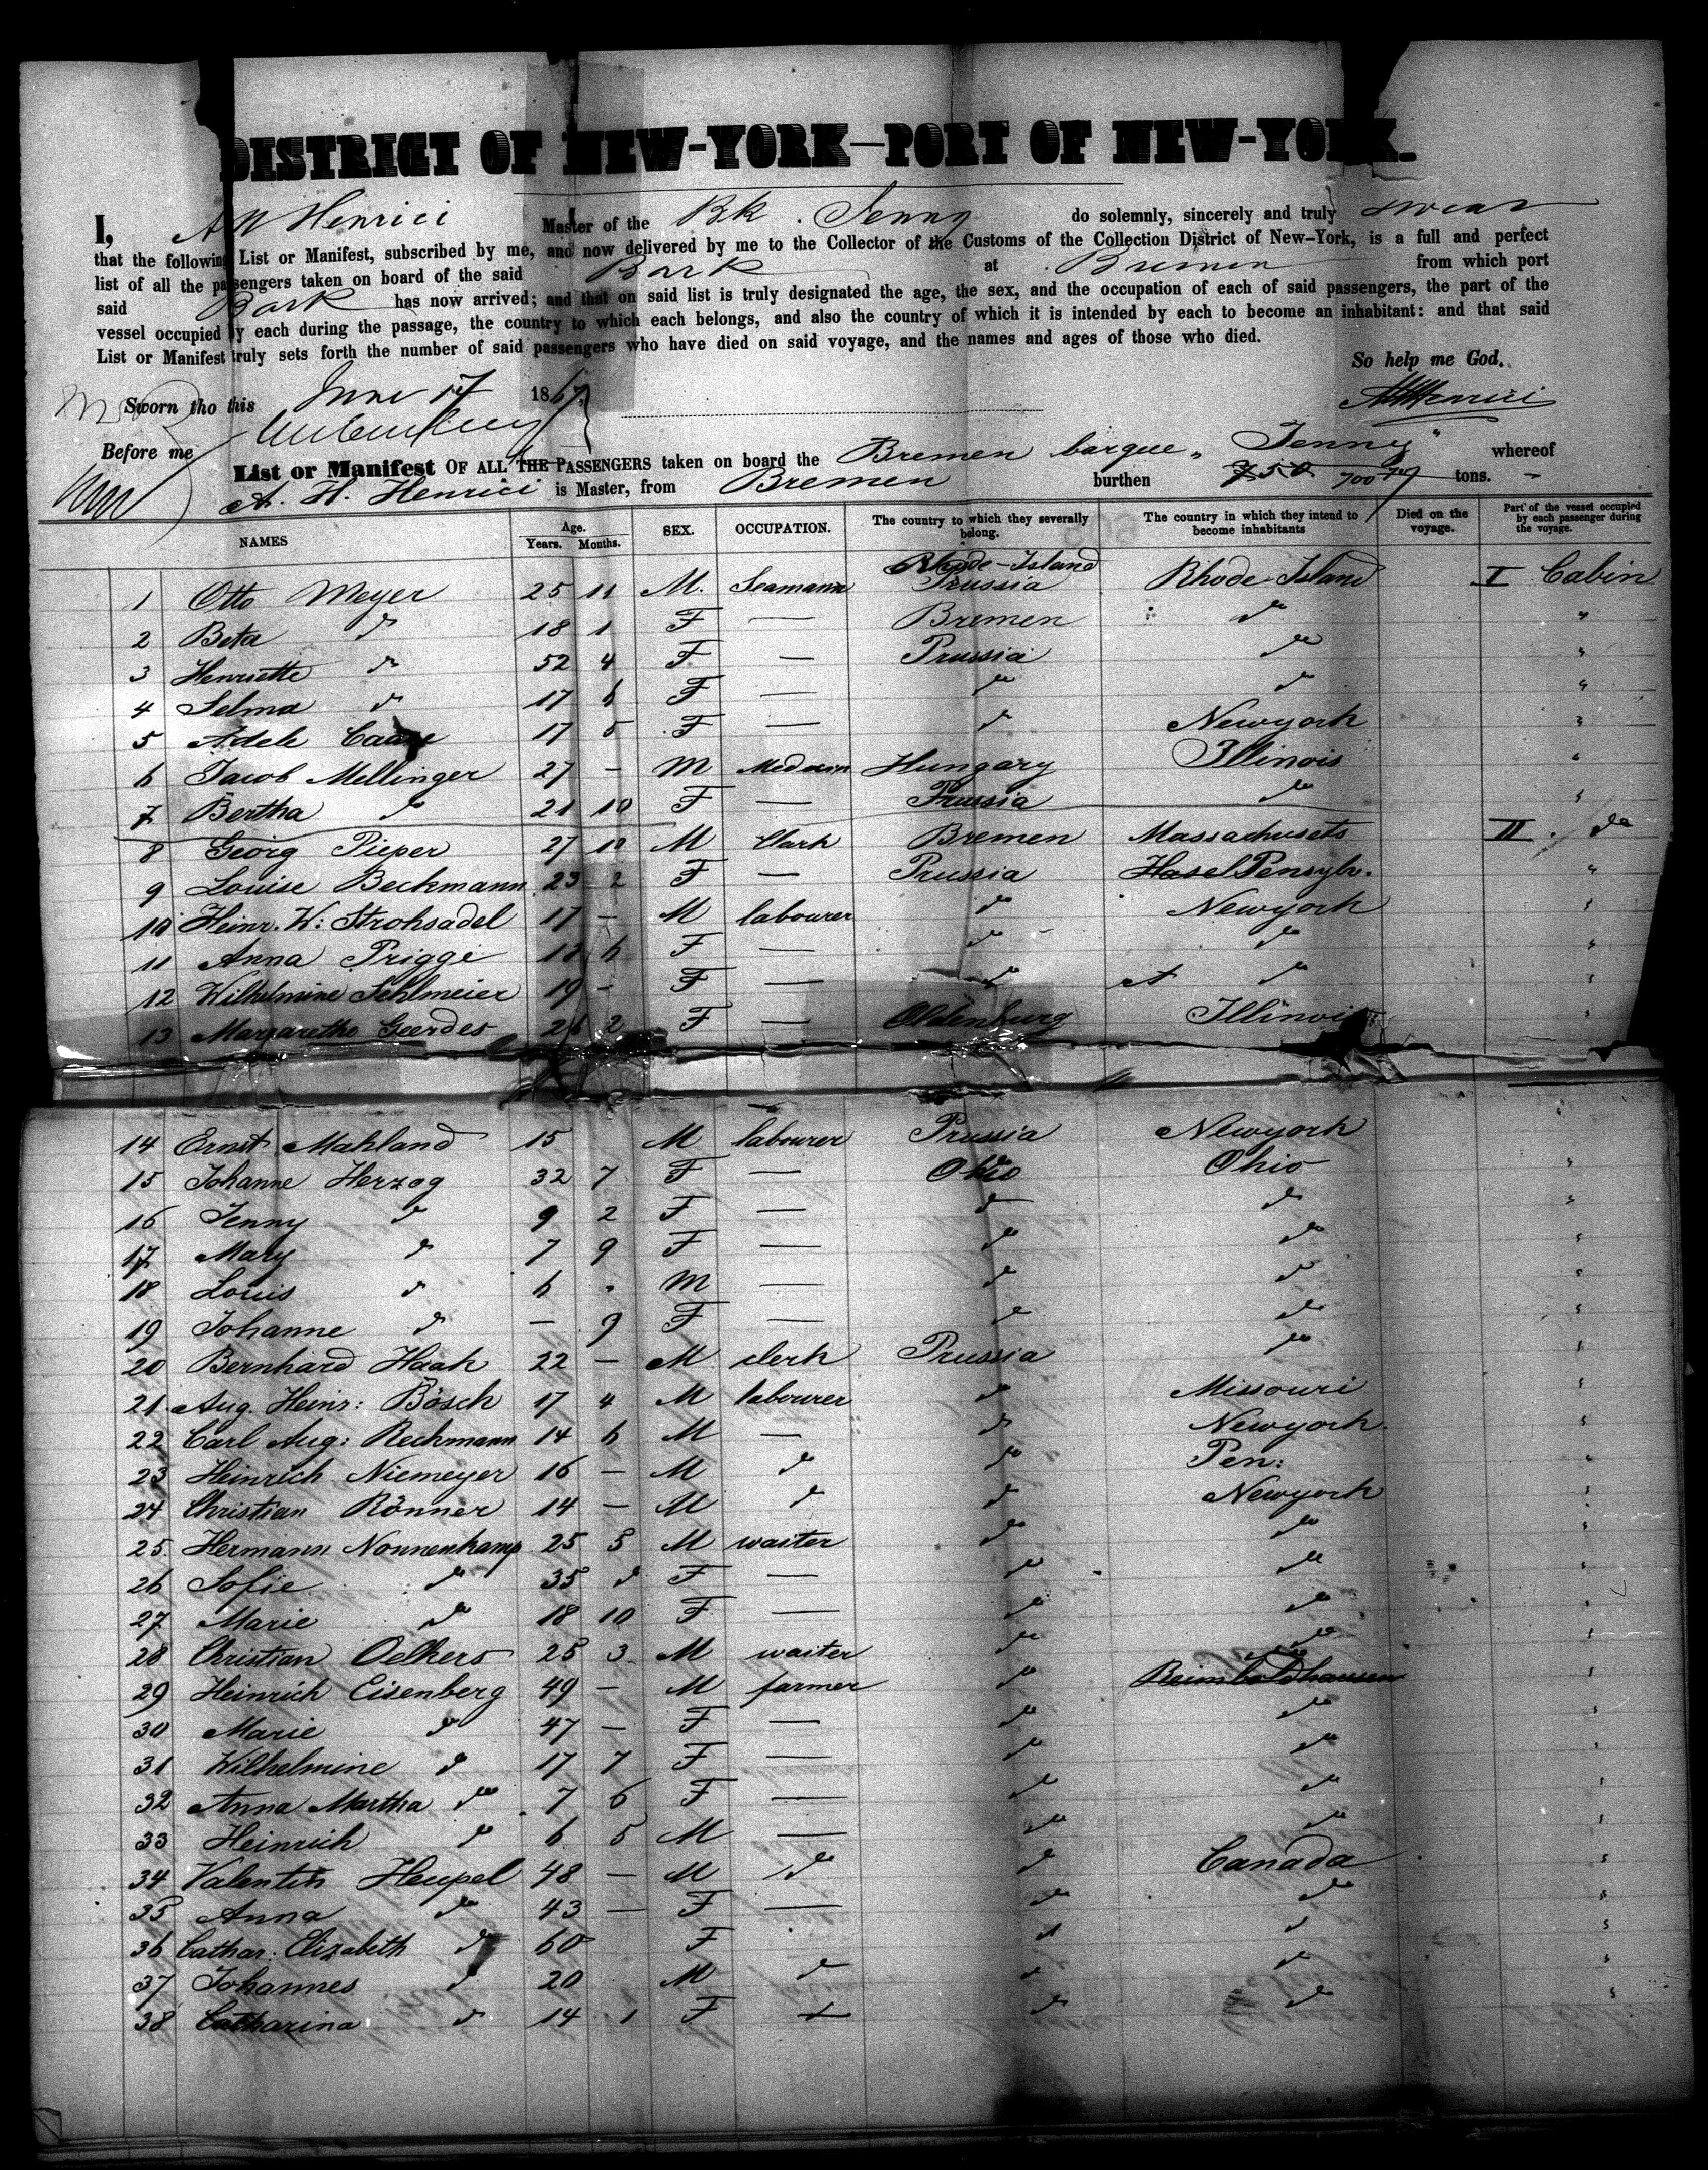 DISTRICT OF NEW-YORK—PORT OF NEW-YORK.
I, A H Henrici Master of the Bk. Jenny do solemnly, sincerely and truly swear
that the following List or Manifest, subscribed by me, and now delivered by me to the Collector of the Customs of the Collection District of New-York, is a full and perfect
list of all the passengers taken on board of the said Bark at Bremen from which port
said Bark has now arrived; and that on said list is truly designated the age, the sex, and the occupation of each of said passengers, the part of the
vessel occupied by each during the passage, the country to which each belongs, and also the country of which it is intended by each to become an inhabitant: and that said
List or Manifest truly sets forth the number of said passengers who have died on said voyage, and the names and ages of those who died.
So help me God.
Sworn tho this June 17 1867 AHHenrici
Before me
List or Manifest OF ALL THE PASSENGERS taken on board the Bremen barque "Jenny" whereof
A. H. Henrici is Master, from Bremen burthen 750 700 tons.
NAMES Age. Years. Months. SEX. OCCUPATION. The country to which they severally belong. The country in which they intend to become inhabitants Died on the voyage. Part of the vessel occupied by each passenger during the voyage.
Rhode-Island
1 Otto Meyer 25 11 M. Seamann Prussia Rhode-Island I Cabin
2 Beta do 18 1 F — Bremen do "
3 Henriette do 52 4 F — Prussia do "
4 Selma do 17 6 F — do do "
5 Adele 17 5 F — do Newyork "
6 Jacob Mellinger 27 — M Hungary Illinois "
7 Bertha do 21 10 F — Prussia do "
8 Georg Pieper 27 10 M Clark Bremen Massachusets II. do
9 Louise Beckmann 23 2 F — Prussia Hasel Pensylv. "
10 Heinr. W: Strohsadel 17 — M labourer do Newyork "
11 Anna Prigge 6 F — do do "
12 Wilhelmine Sehlmeier 19 — F — do do "
13 Margarethe Geerdes 26 2 F — Oldenburg Illinois "
14 Ernst Mahland 15 M labourer Prussia Newyork "
15 Johanne Herzog 32 7 F — Ohio Ohio "
16 Jenny do 9 2 F — do do "
17 Mary do 7 9 F — do do "
18 Louis do 6 . M — do do "
19 Johanne do — 9 F — do do "
20 Bernhard Haak 22 — M clerk Prussia do "
21 Aug. Heinr: Bösch 17 4 M labourer do Missouri "
22 Carl Aug: Reckmann 14 6 M — do Newyork. "
23 Heinrich Niemeyer 16 — M do do Pen: "
24 Christian Rönner 14 — M do do Newyork "
25. Hermann Nonnenkamp 25 5 M waiter do do "
26 Sofie do 35 do F — do do "
27 Marie do 18 10 F — do do "
28 Christian Oelkers 25 3 M waiter do do "
29 Heinrich Eisenberg 49 — M farmer do Reimboldhausen "
30 Marie do 47 — F — do do "
31 Wilhelmine do 17 7 F — do do "
32 Anna Martha do 7 6 F — do do "
33 Heinrich do 6 5 M — do do "
34 Valentin Heupel 48 — M do do Canada "
35 Anna do 43 — F — do do "
36 Cathar: Elizabeth do 60 F do do "
37 Johannes do 20 M do do do "
38 Catharina do 14 1 F — do do "